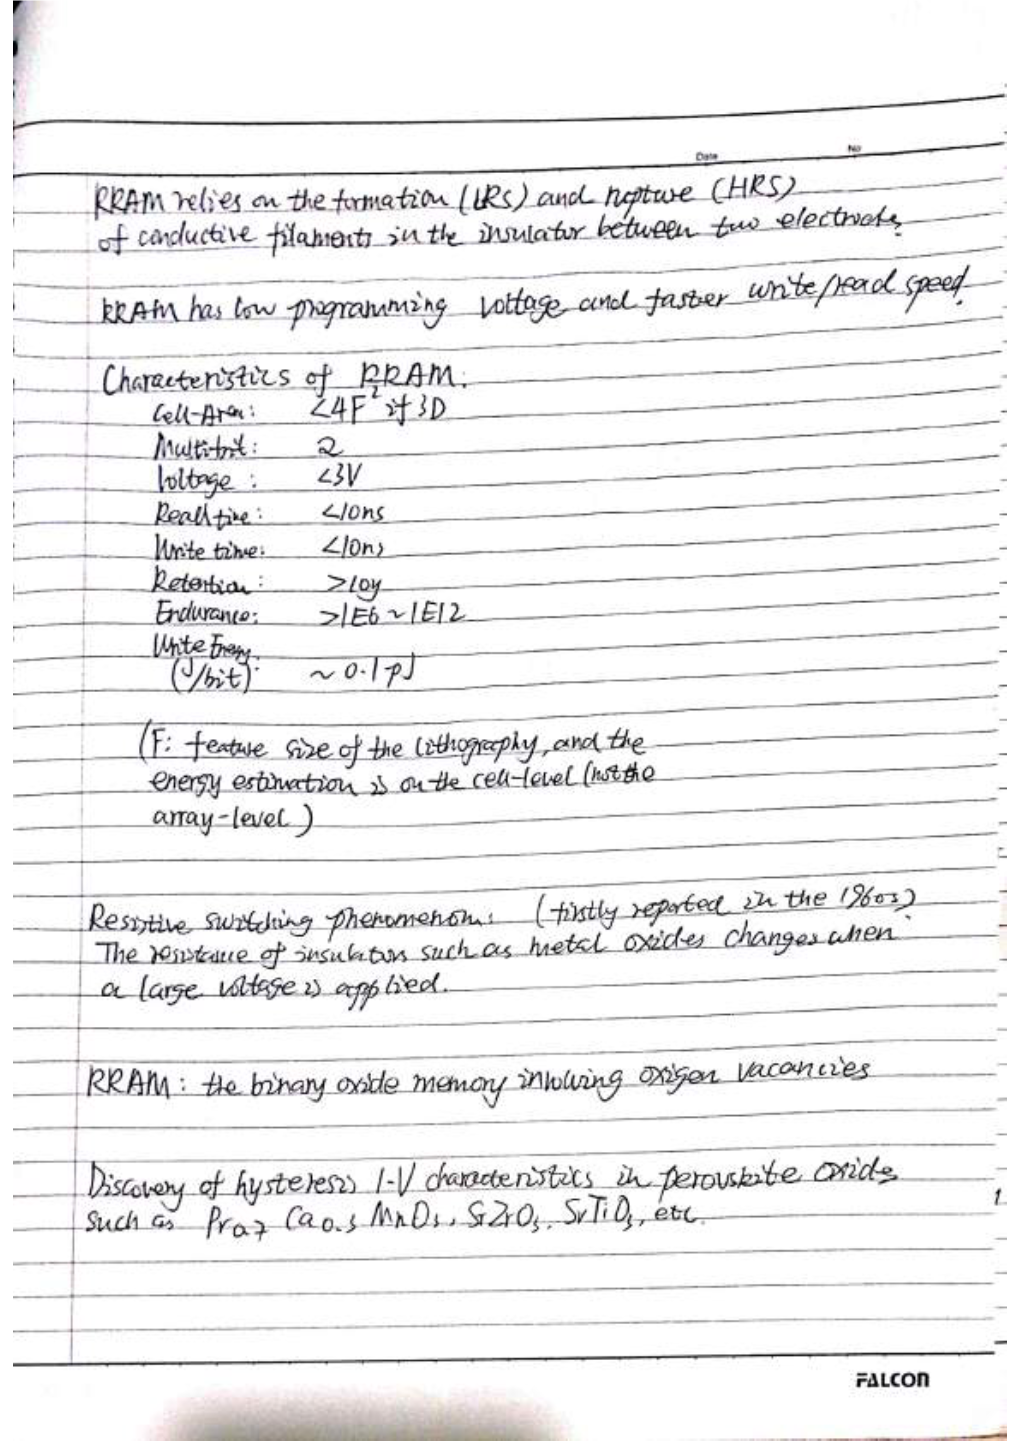 Date No
RRAM relies on the formation (LRS) and rupture (HRS)
of conductive filaments in the insulator between two electrodes.
RRAM has low programming voltage and faster write/read speed.
Characteristics of RRAM:
Cell-Area: <4F² if 3D
Multi-bit: 2
Voltage: <3V
Read time: <10ns
Write time: <10ns
Retention: >10y
Endurance: >1E6~1E12
Write Energy
(J/bit): ~0.1pJ
(F: feature size of the lithography, and the
energy estimation is on the cell-level (not the
array-level)
Resistive switching phenomenon: (firstly reported in the 1960s)
The resistance of insulators such as metal oxides changes when
a large voltage is applied.
RRAM: the binary oxide memory involving oxigen vacancies
Discovery of hysteresis I-V characteristics in perovskite oxides
such as Pr0.7 Ca0.3 MnO3, SrZrO3, SrTiO3, etc.
1
FALCON